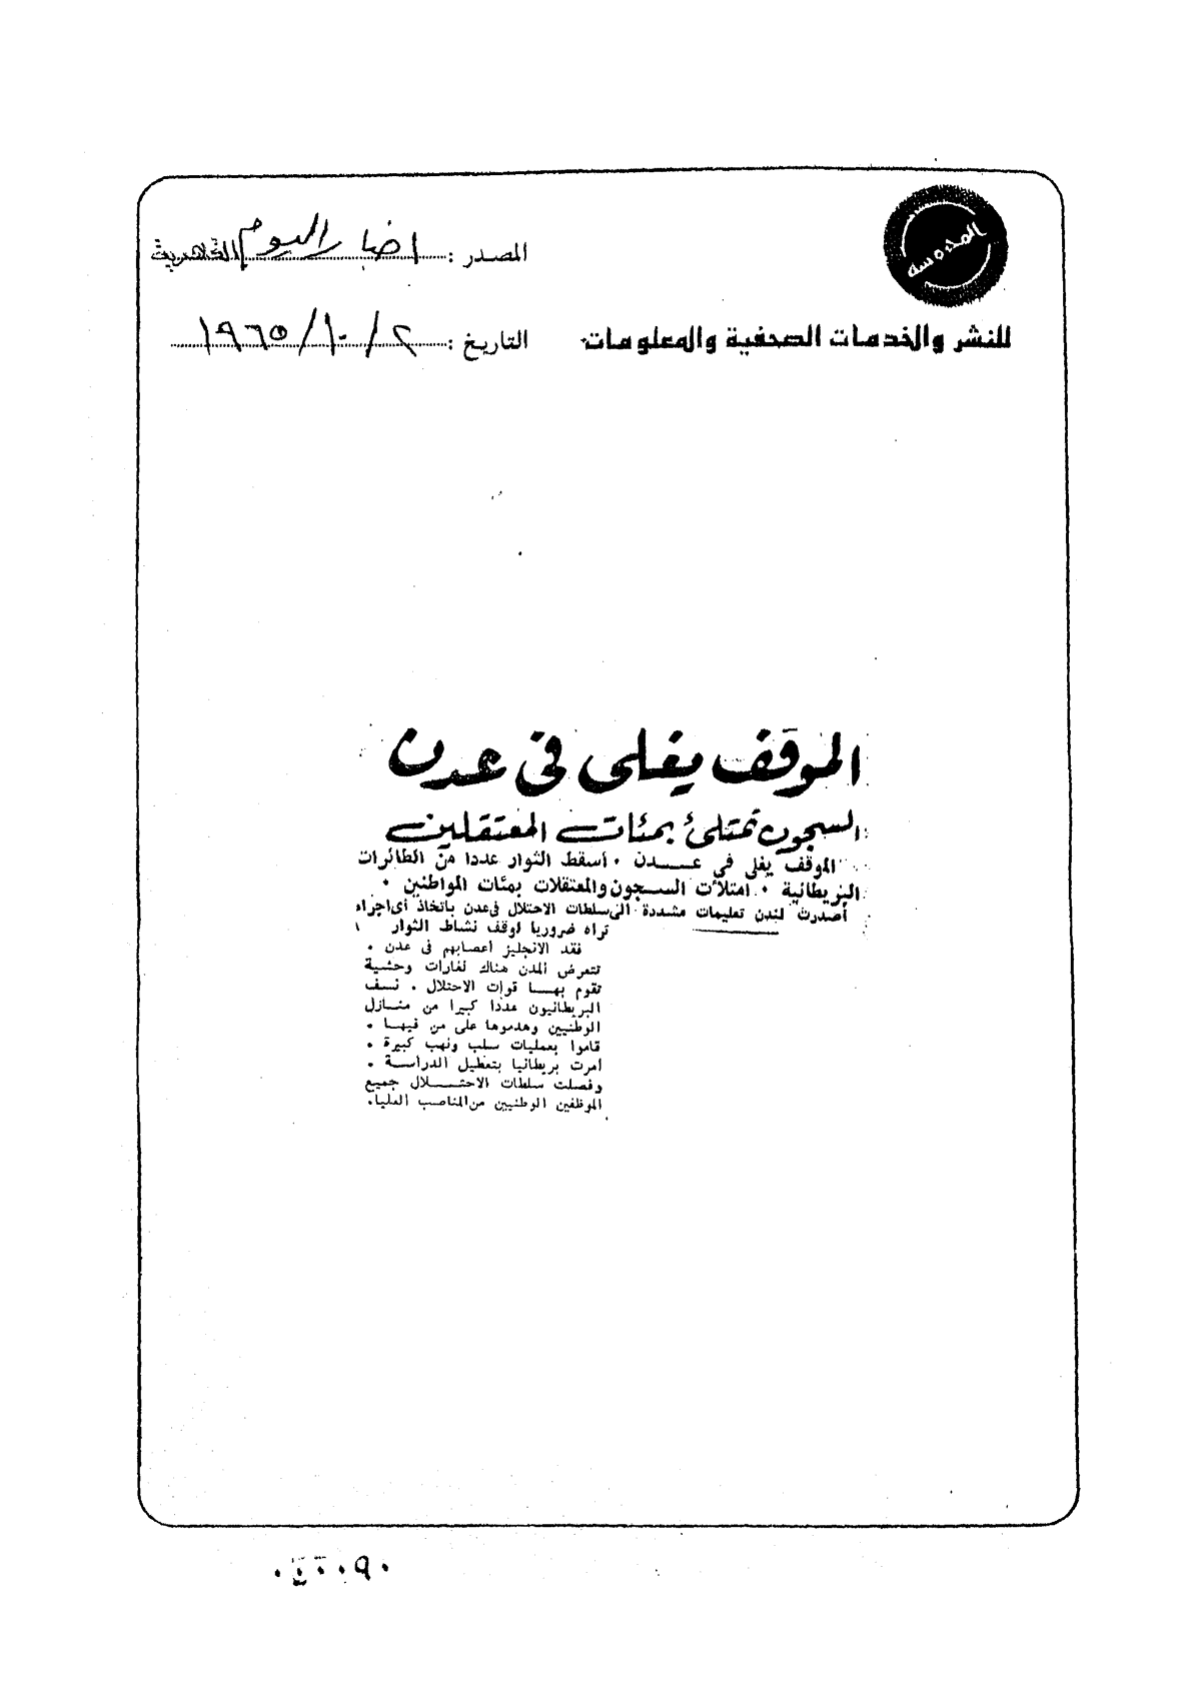 المحروسة
المصدر : اخبار اليوم القاهرية
للنشر والخدمات الصحفية والمعلومات
التاريخ : ٢ / ١٠ / ١٩٦٥
الموقف يغلى فى عدن
السجون تمتلئ بمئات المعتقلين
الموقف يغلى في عــدن . أسقط الثوار عددا من الطائرات
البريطانية . امتلأت السـجون والمعتقلات بمئات المواطنين .
أصدرت لندن تعليمات مشددة الى سلطات الاحتلال فى عدن باتخاذ أى اجراء
تراه ضروريا لوقف نشاط الثوار
فقد الانجليز أعصابهم فى عدن .
تتعرض المدن هناك لغارات وحشية
تقوم بهـا قوات الاحتلال . نسـف
البريطانيون عددا كبيرا من منـازل
الوطنيين وهدموها على من فيهـا .
قاموا بعمليات سلب ونهب كبيرة .
أمرت بريطانيا بتعطيل الدراسـة .
وفصلت سلطات الاحتـلال جميع
الموظفين الوطنيين من المناصب العليا .